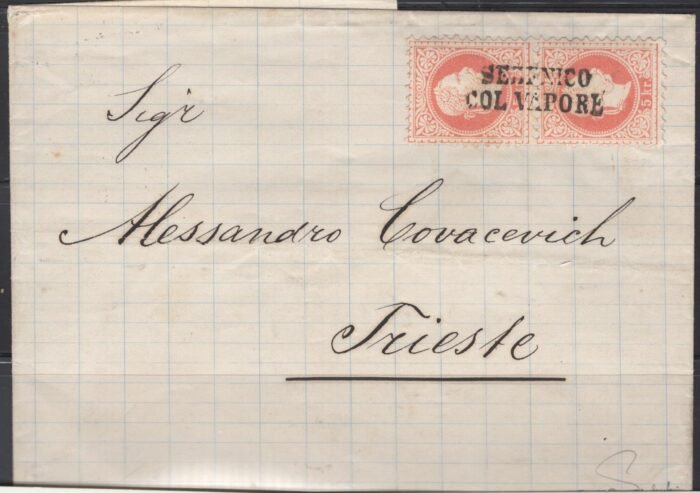 SEBENICO
COL VAPORE
5 kr
Sigr
Alessandro Covacevich
Trieste